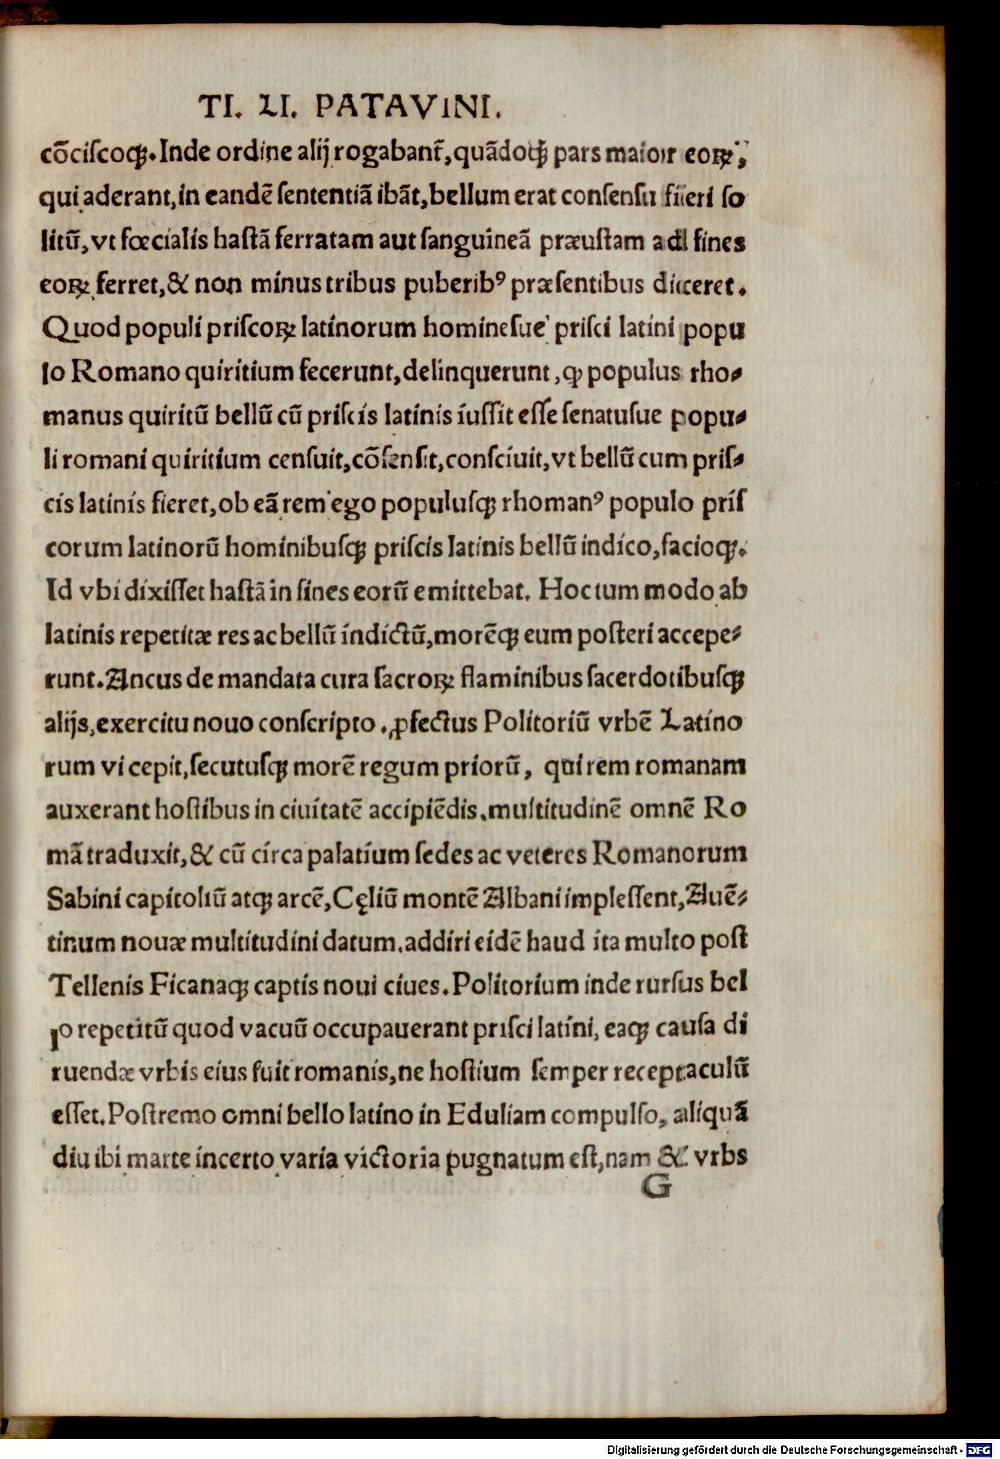 TI. LI. PATAVINI.
cõciſcoqꝫ. Inde ordine alij rogabant̃, quãdoqꝫ pars maior eoꝝ,
qui aderant, in eandẽ ſententiã ibãt, bellum erat conſenſu fieri ſo
litũ, vt fœcialis haſtã ferratam aut ſanguineã præuſtam ad fines
eoꝝ ferret, & non minus tribus puberibꝰ præſentibus diceret.
Quod populi priſcoꝝ latinorum homineſue priſci latini popu
lo Romano quiritium fecerunt, delinquerunt, ꝙ populus rho⸗
manus quiritũ bellũ cũ priſcis latinis iuſſit eſſe ſenatuſue popu⸗
li romani quiritium cenſuit, cõſenſit, conſciuit, vt bellũ cum priſ⸗
cis latinis fieret, ob eã rem ego populuſqꝫ rhomanꝰ populo priſ
corum latinorũ hominibuſqꝫ priſcis latinis bellũ indico, facioqꝫ.
Id vbi dixiſſet haſtã in fines eorũ emittebat. Hoc tum modo ab
latinis repetitæ res ac bellũ indictũ, morẽqꝫ eum poſteri accepe⸗
runt. Ancus de mandata cura ſacroꝝ flaminibus ſacerdotibuſqꝫ
alijs, exercitu nouo conſcripto, ꝓfectus Politoriũ vrbẽ Latino
rum vi cepit, ſecutuſqꝫ morẽ regum priorũ, qui rem romanam
auxerant hoſtibus in ciuitatẽ accipiẽdis, multitudinẽ omnẽ Ro
mã traduxit, & cũ circa palatium ſedes ac veteres Romanorum
Sabini capitoliũ atqꝫ arcẽ, Cęliũ montẽ Albani impleſſent, Auẽ⸗
tinum nouæ multitudini datum, addiri eidẽ haud ita multo poſt
Tellenis Ficanaqꝫ captis noui ciues. Politorium inde rurſus bel
lo repetitũ quod vacuũ occupauerant priſci latini, eaqꝫ cauſa di
ruendæ vrbis eius fuit romanis, ne hoſtium ſemper receptaculũ
eſſet. Poſtremo omni bello latino in Eduliam compulſo, aliquã
diu ibi marte incerto varia victoria pugnatum eſt, nam & vrbs
G
Digitalisierung gefördert durch die Deutsche Forschungsgemeinschaft - DFG